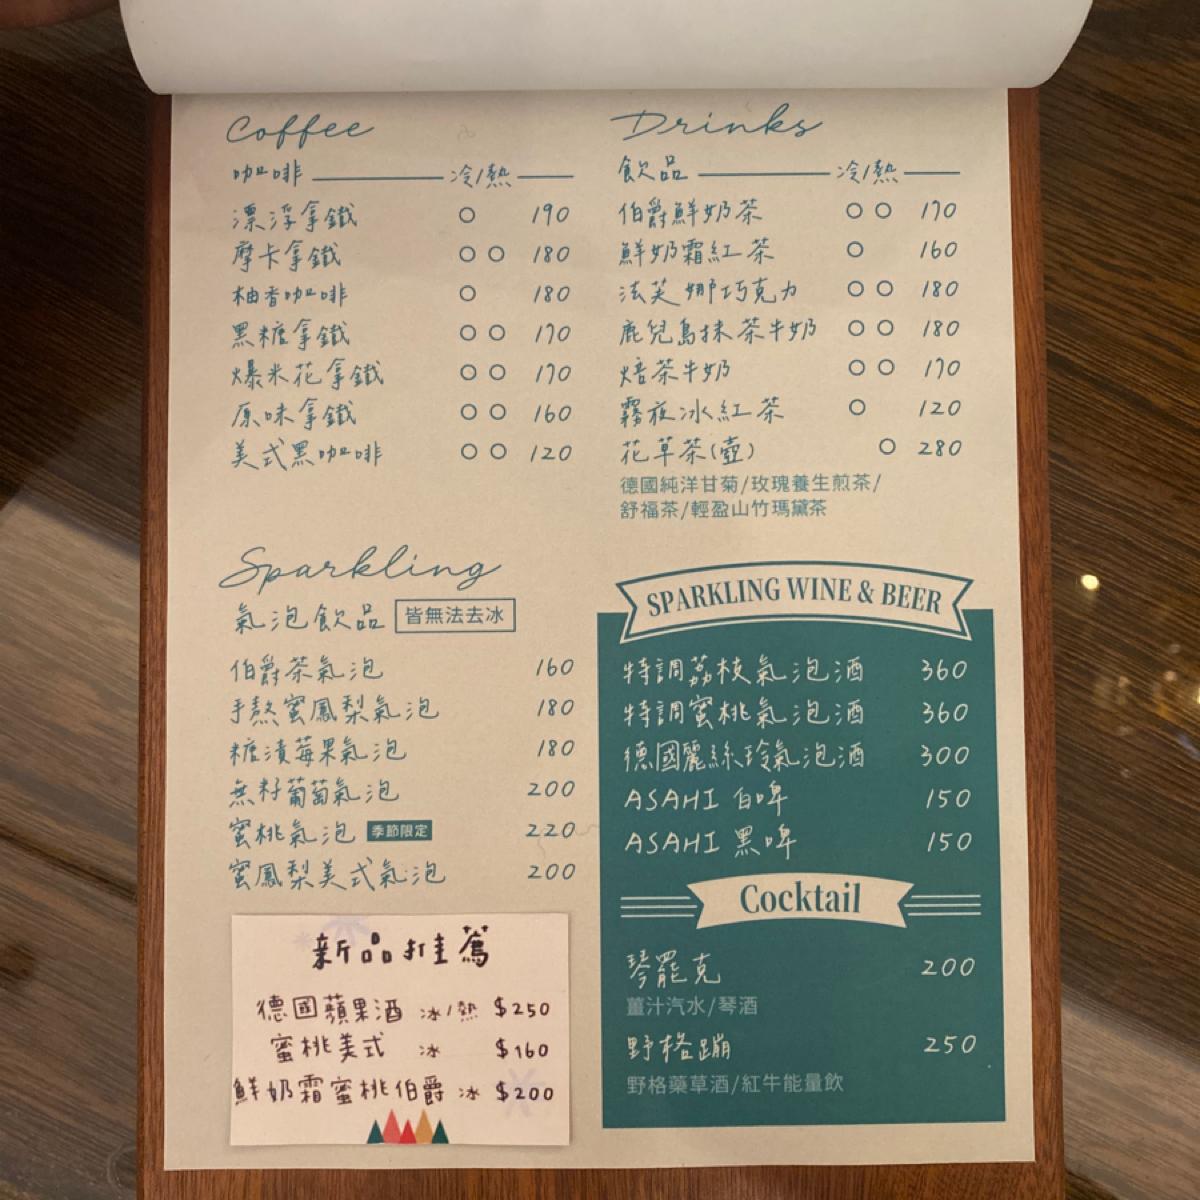 Coffee
咖啡 冷/熱
漂浮拿鐵 ○ 190
摩卡拿鐵 ○ ○ 180
柚香咖啡 ○ 180
黑糖拿鐵 ○ ○ 170
爆米花拿鐵 ○ ○ 170
原味拿鐵 ○ ○ 160
美式黑咖啡 ○ ○ 120
Drinks
飲品 冷/熱
伯爵鮮奶茶 ○ ○ 170
鮮奶霜紅茶 ○ 160
法芙娜巧克力 ○ ○ 180
鹿兒島抹茶牛奶 ○ ○ 180
焙茶牛奶 ○ ○ 170
霧夜冰紅茶 ○ 120
花草茶(壺) ○ 280
德國純洋甘菊/玫瑰養生煎茶/
舒福茶/輕盈山竹瑪黛茶
Sparkling
氣泡飲品 皆無法去冰
伯爵茶氣泡 160
手熬蜜鳳梨氣泡 180
糖漬莓果氣泡 180
無籽葡萄氣泡 200
蜜桃氣泡 季節限定 220
蜜鳳梨美式氣泡 200
新品推薦
德國蘋果酒 冰/熱 $250
蜜桃美式 冰 $160
鮮奶霜蜜桃伯爵 冰 $200
SPARKLING WINE & BEER
特調荔枝氣泡酒 360
特調蜜桃氣泡酒 360
德國麗絲玲氣泡酒 300
ASAHI 白啤 150
ASAHI 黑啤 150
Cocktail
琴罷克 200
薑汁汽水/琴酒
野格蹦 250
野格藥草酒/紅牛能量飲